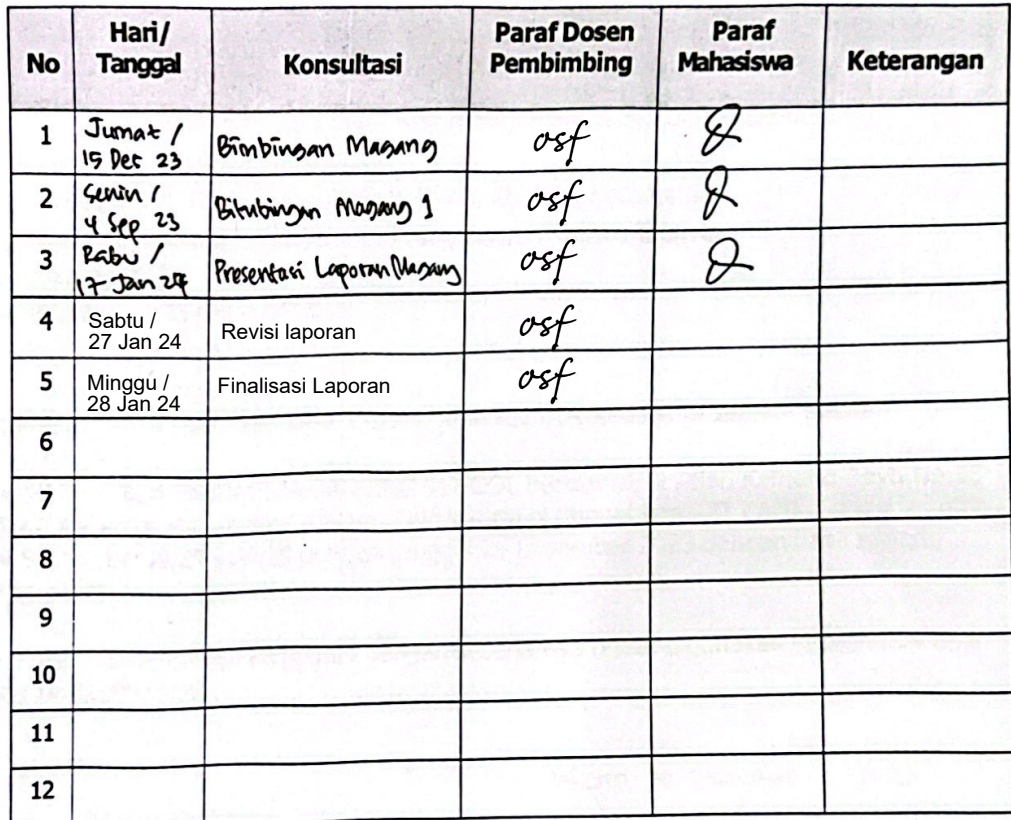 No Hari/ Tanggal Konsultasi Paraf Dosen Pembimbing Paraf Mahasiswa Keterangan
1 Jumat / 15 Dec 23 Bimbingan Magang osf
2 Senin / 4 Sep 23 Bimbingan Magang 1 osf
3 Rabu / 17 Jan 24 Presentasi Laporan Magang osf
4 Sabtu / 27 Jan 24 Revisi laporan osf
5 Minggu / 28 Jan 24 Finalisasi Laporan osf
6
7
8
9
10
11
12